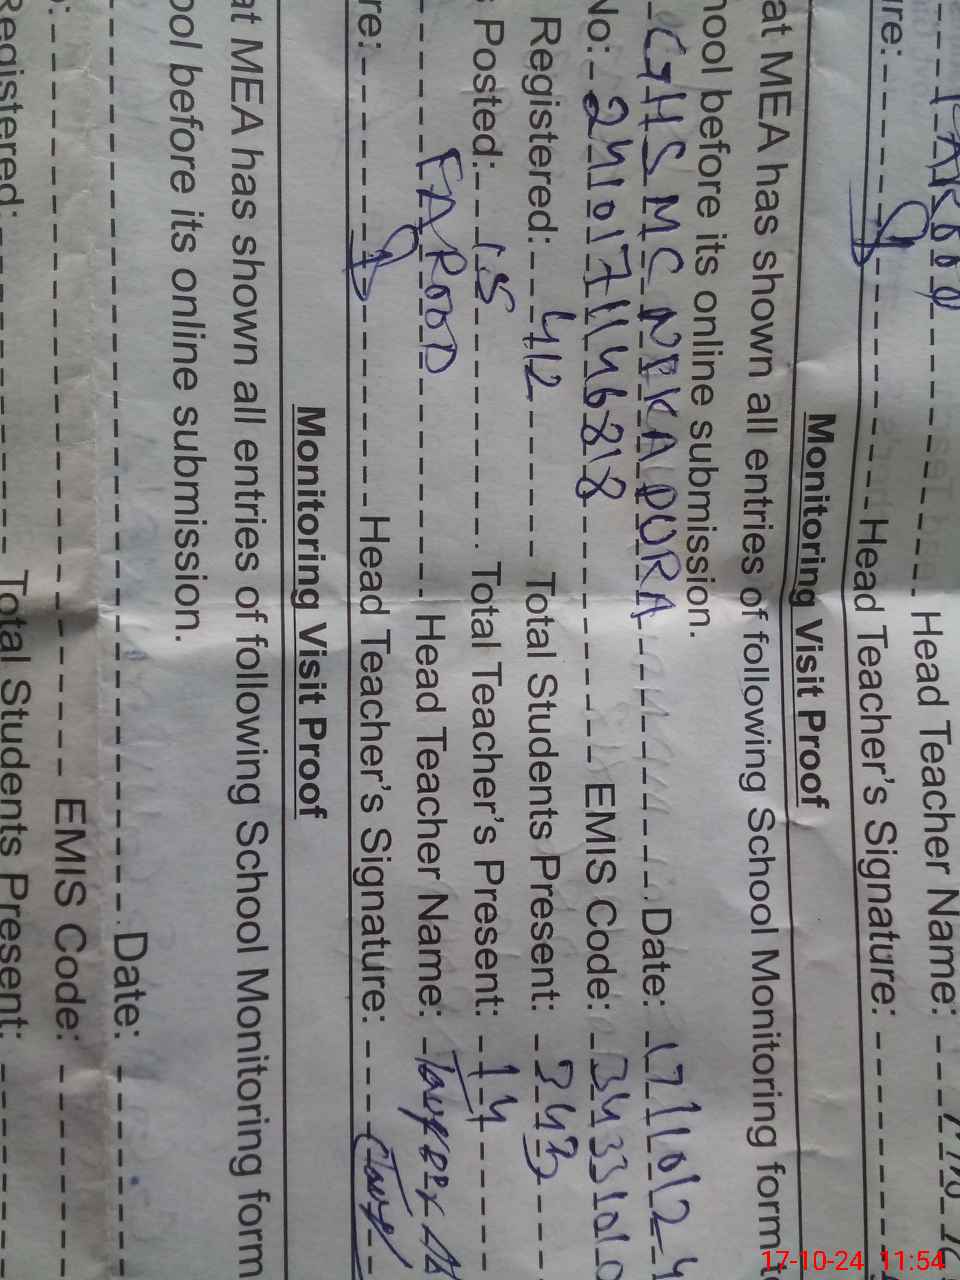 Head Teacher Name:
re: Head Teacher's Signature:
Monitoring Visit Proof
at MEA has shown all entries of following School Monitoring form
ool before its online submission.
GHSMC NEKAPURA Date: 17/10/24
No: EMIS Code:
Registered: 412 Total Students Present: 343
Posted: 15 Total Teacher's Present: 14
FAROOD Head Teacher Name:
re: Head Teacher's Signature:
Monitoring Visit Proof
at MEA has shown all entries of following School Monitoring form
ool before its online submission.
Date:
EMIS Code:
Registered: Total Students Present:
17-10-24 11:54